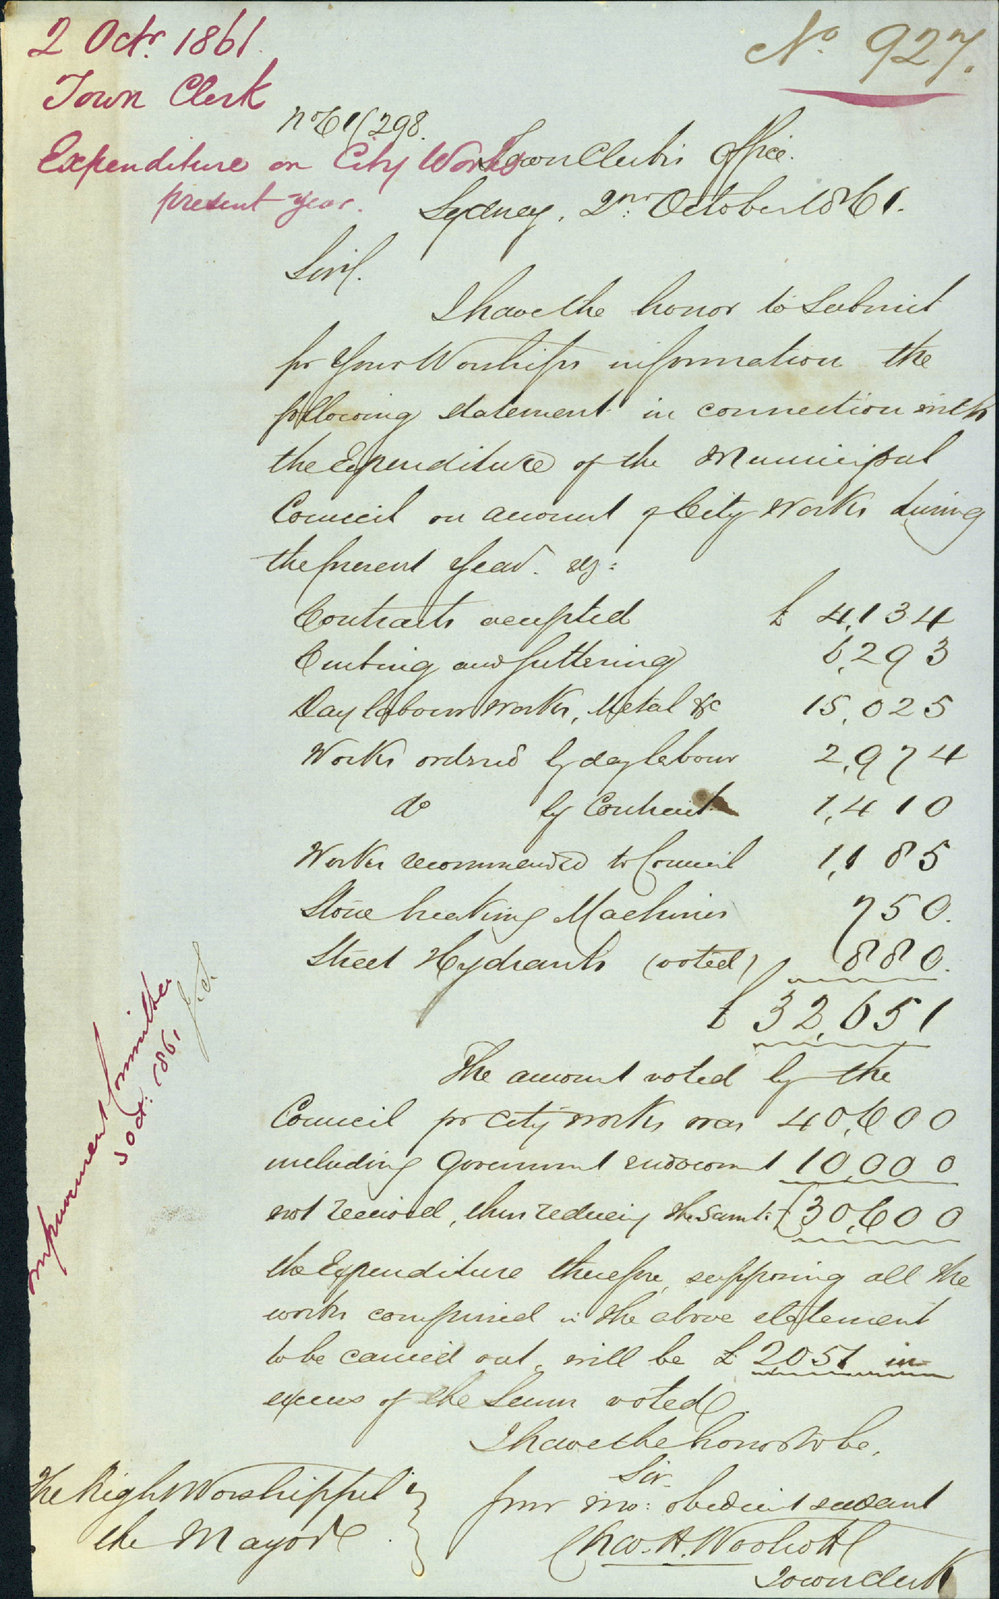 2 Octr. 1861.
Town Clerk
Expenditure on City Works
present year.
No. 927.
No 61/298.
Town Clerk's Office.
Sydney, 2nd October 1861.
Sir,
I have the honor to Submit
for Your Worship's information the
following statement in connection with
the Expenditure of the Municipal
Council on account of City Works during
the present Year. viz:
Contracts accepted £ 4,134
Curbing and guttering 6,293
Day labour works, Metal &c 15,025
Works ordered by day labour 2,974
do by Contract 1,410
Works recommended to Council 1,185
Stone breaking Machines 750.
Street Hydrants (voted) 880.
£ 32,651
The amount voted by the
Council for City works was 40,600
including Government endowment 10,000
not received, thus reducing the sum to £30,600
the Expenditure therefore, supposing all the
works comprised in the above statement
to be carried out, will be £2051 in
excess of the Sum voted.
I have the honor to be,
Sir,
Your mo: obedient servant
Chas. H. Woolcott
Town Clerk
The Right Worshipful
the Mayor
Improvement Committee
3 Oct: 1861